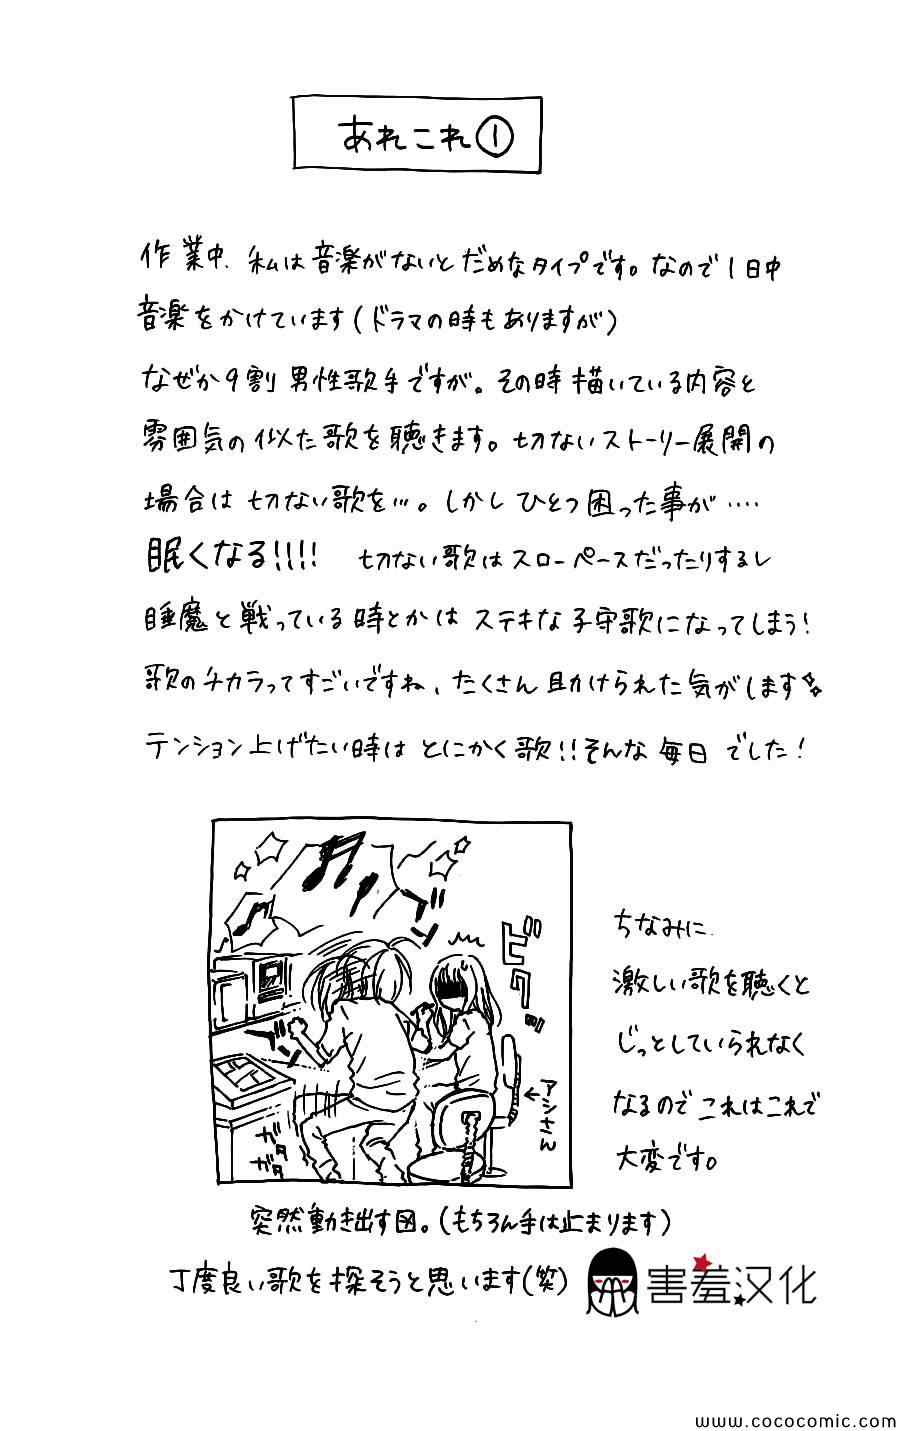 あれこれ①
作業中、私は音楽がないとだめなタイプです。なので1日中
音楽をかけています(ドラマの時もありますが)
なぜか9割男性歌手ですが。その時描いている内容と
雰囲気の似た歌を聴きます。切ないストーリー展開の
場合は切ない歌を…。しかしひとつ困った事が‥‥
眠くなる!!!! 切ない歌はスローペースだったりするし
睡魔と戦っている時とかはステキな子守歌になってしまう!
歌のチカラってすごいですね、たくさん助けられた気がします
テンション上げたい時はとにかく歌!!そんな毎日でした!
ブン
ビクッ
ブン
アシさん
ガタ
ガタ
ちなみに、
激しい歌を聴くと
じっとしていられなく
なるのでこれはこれで
大変です。
突然動き出す図。(もちろん手は止まります)
丁度良い歌を探そうと思います(笑)
害羞汉化
www.cococomic.com